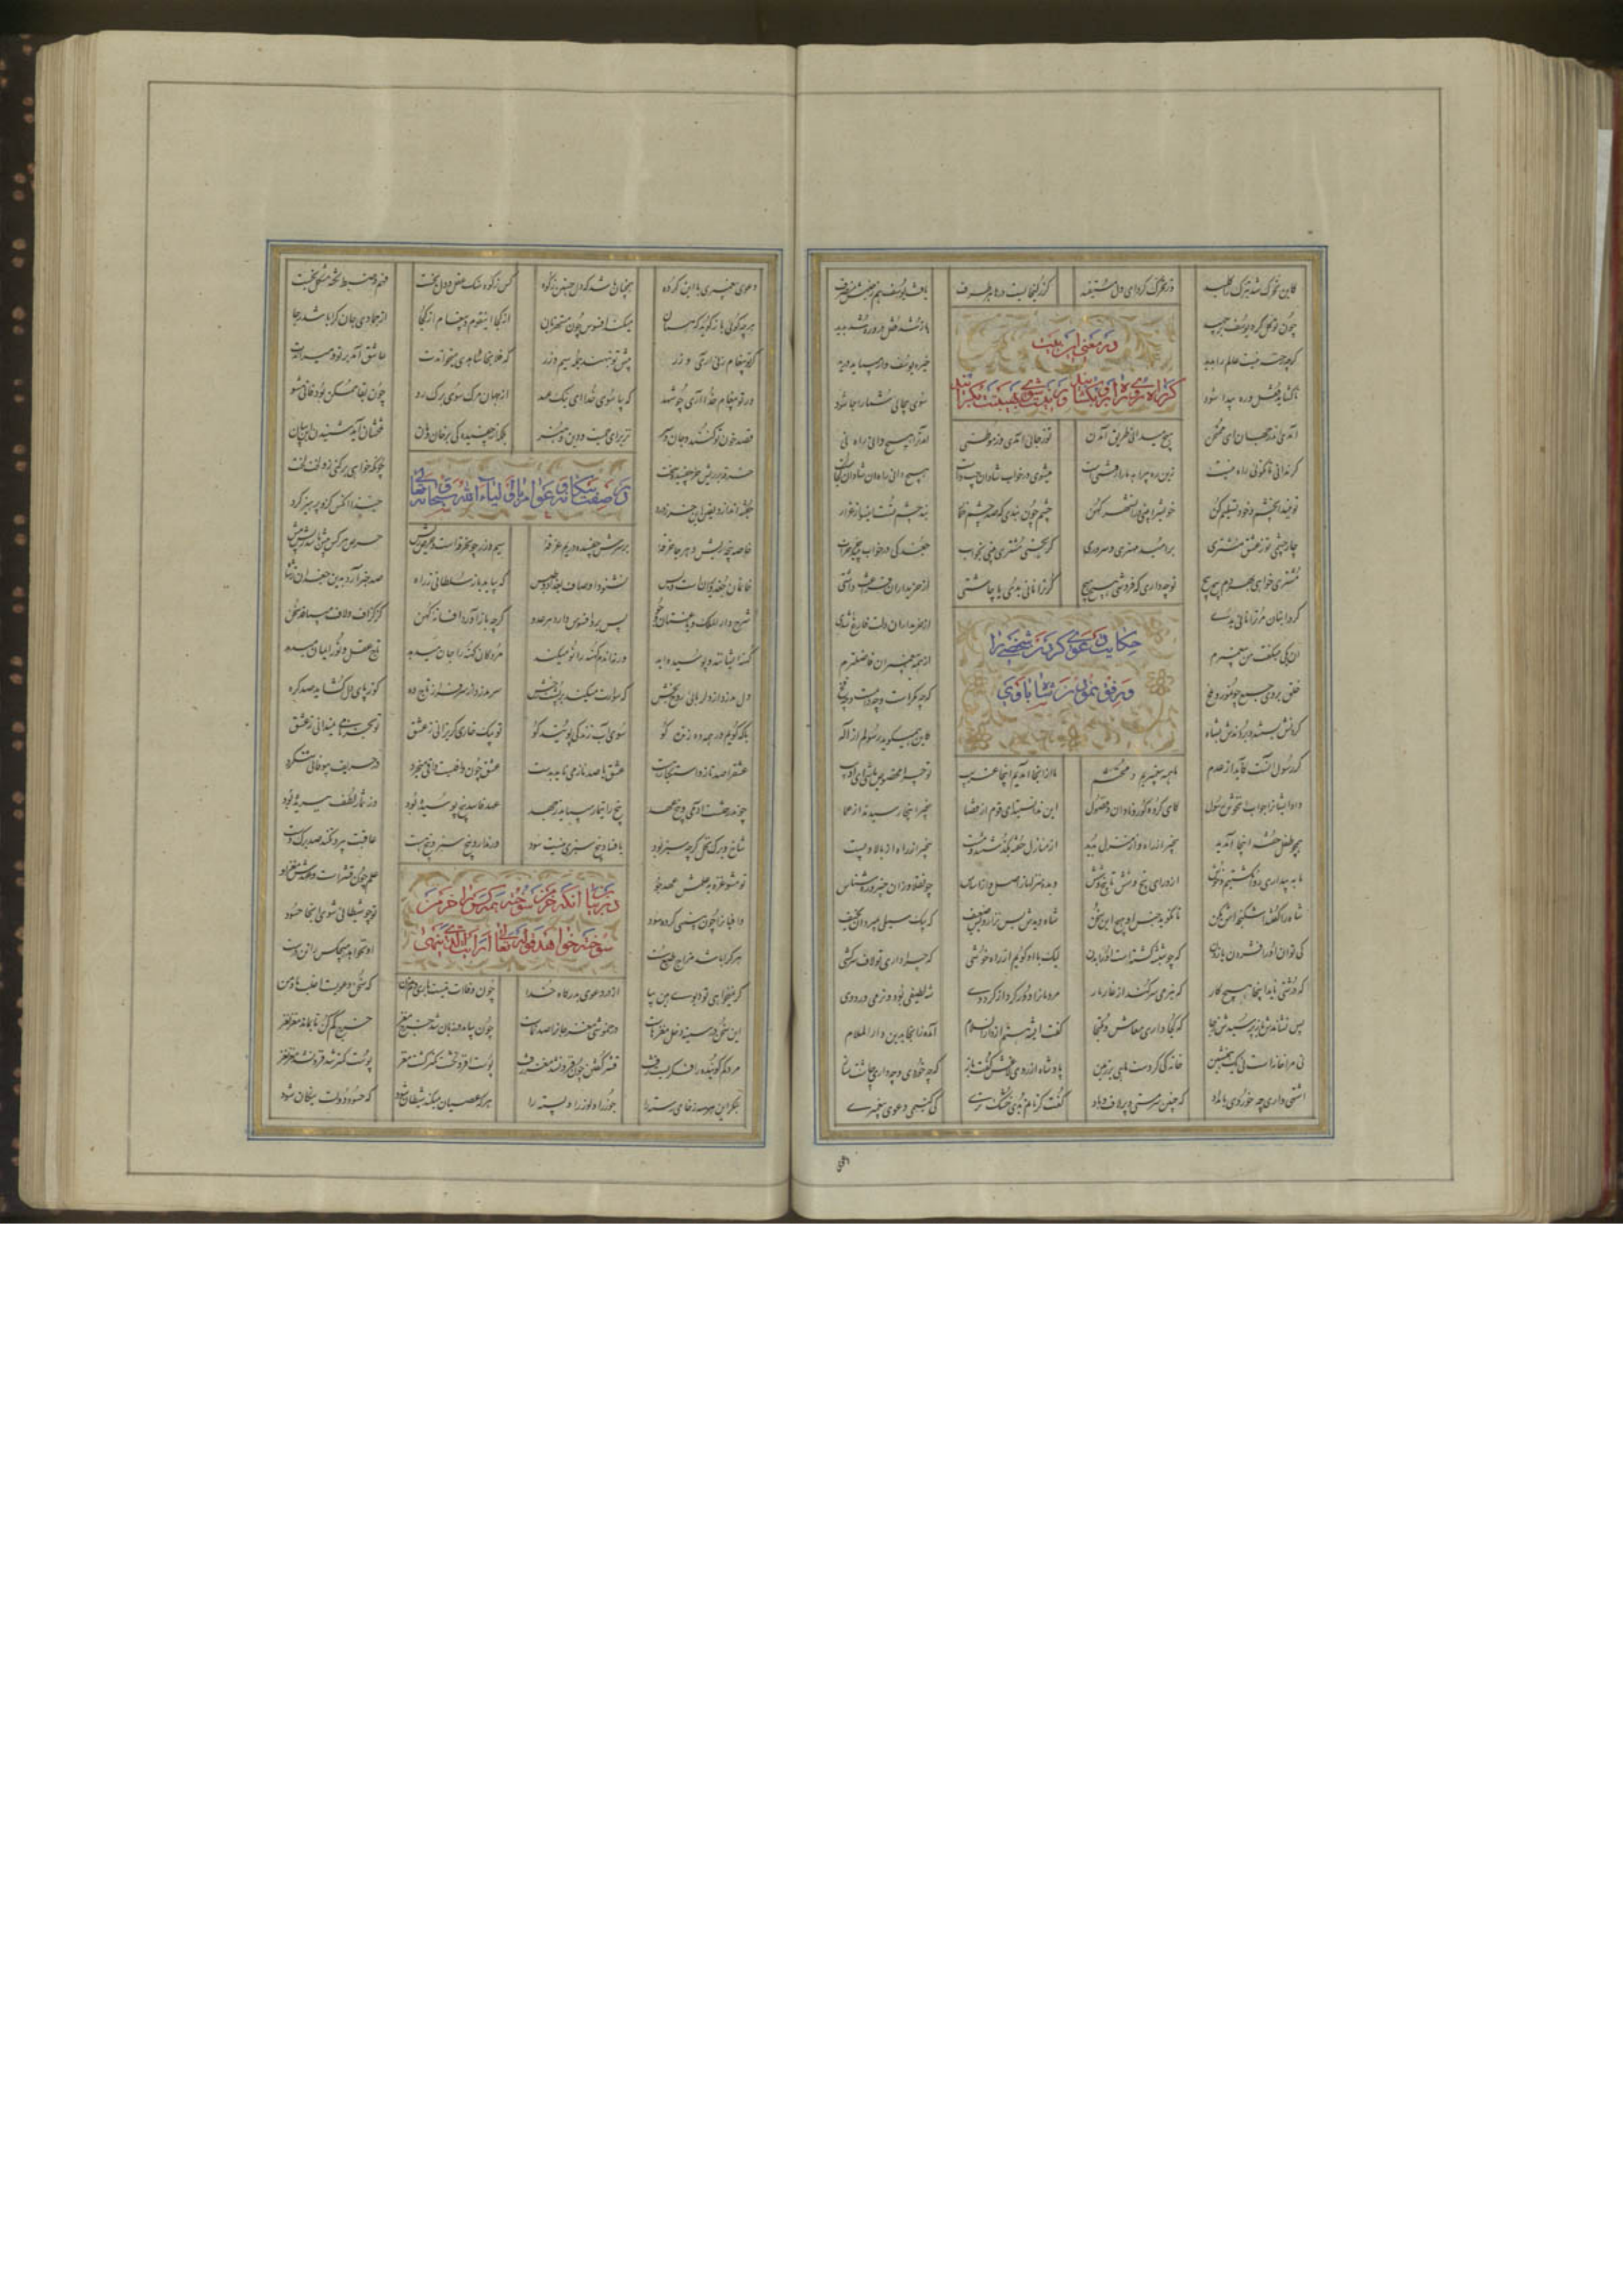 کاین تحرک شد تبرک را کلید وز تحرک گردای دل مستفید گر زلیخا بست درها هر طرف یافت یوسف هم ز جنبش منصرف
چون توکل کرد یوسف برجهید باز شد قفل و در و ره شد پدید
در معنی این بیت
گرچه رخنه نیست عالم را پدید خیره یوسف وار میباید دوید
گر راه روی راه برت بگشایند ور نیست شوی بهستیت بگرایند
تا گشاید قفل و ره پیدا شود سوی بیجائی شما را جا شود
آمدی اندر جهان ای ممتحن هیچ میدانی طریق آمدن تو ز جائی آمدی وز موطنی آمدن را هیچ دانی راه نی
گر ندانی تا نگوئی راه نیست زین ره بیراهه ما را رفتنیست میروی در خواب شادان چپ و راست هیچ دانی راه آن میدان کجاست
تو ببند آن چشم و خود تسلیم کن خویش را بینی در آن شهر کهن چشم چون بندی که صد چشم خمار بند چشم تست اینسو از غرار
چارچشمی تو ز عشق مشتری بر امید مهتری و سروری گر بخسبی مشتری بینی بخواب جغد کی در خواب بیند جز خراب
مشتری خواهی بهر دم پیچ پیچ تو چه داری که فروشی هیچ هیچ گر ترا نانی بدی یا چاشتی از خریداران فراغت داشتی
گر در انبان مر ترا نانی بدی از خریداران دلت فارغ شدی
حکایت دعوی کردن شخصی
آن یکی میگفت من پیغمبرم از همه پیغمبران فاضلترم
خلق بر وی جمع چون مور و ملخ که چه مکرست و چه
ورفق نمودن شاه با وی
گردنش بستند و بردندش بشاه کاین همیگوید رسولم از اله
گر رسول آنست کآید از عدم ما همه پیغمبریم و محتشم ما از آنجا آمدیم اینجا غریب تو چرا مخصوص باشی ای ادیب
داد ایشانرا جواب آن خوش رسول کای گروه کور و نادان و فضول این ندانستید ای قوم از قضا بیخبر اینجا رسیدید از عما
همچو طفل خفته اینجا آمدید بیخبر از راه وز منزل بدید از منازل خفته بگذشتید و مست بیخبر از راه و از بالا و پست
ما به بیداری روان گشتیم و خوش از ورای پنج و شش تا پنج و شش دیده منزلها ز اصل و از اساس چون قلاوزان خبیر و ره شناس
شاه را گفتند اشکنجه اش بکن تا نگوید جنس او هیچ این سخن شاه دیدش بس نزار و بس ضعیف که بیک سیلی بمیرد آن نحیف
کی توان او را فشردن یا زدن که چو شیشه گشته است او را بدن لیک با او گویم از راه خوشی که چرا داری تو لاف سرکشی
که درشتی ناید اینجا هیچ کار که بنرمی سر کند از غار مار مردمانرا دور کرد از گرد وی شه لطیفی بود و نرمی ورد وی
پس نشاندش باز پرسیدش ز جا که کجا داری معاش و ملتجا گفت ای شه هستم از دارالسلام آمده زانجا بدین دارالملام
نی مرا خانه است نی یک همنشین خانه کی کردست ماهی بر زمین پادشاه از روی لاغش گفت باز که چه خوردی و چه داری چاشت ساز
اشتها داری چه خوردی بامداد که چنین سرمستی و پر لاف و باد گفت گر نانم بدی خشک و تری کی کنیمی دعوی پیغمبری
دعوی پیغمبری با این گروه همچنان باشد که دل جستن ز کوه کس ز کوه و سنگ عقل و دل نجست فهم و ضبط نکته مشکل نجست
هرچه گوئی باز گوید که همان میکند افسوس چون مستهزیان از کجا این قوم و پیغام از کجا از جمادی جان کرا باشد رجا
گر تو پیغام زنی آری و زر پیش تو بنهند جمله سیم و زر که فلانجا شاهدی میخواندت عاشق آمد بر تو او میداندت
ور تو پیغام خدا آری چو شهد که بیا سوی خدا ای نیک عهد از جهان مرگ سوی برگ رو چون بقا ممکن بود فانی مشو
قصد خون تو کنند و جان و سر نز برای حمیت و دین و هنر بلکه از چفسیدگی بر خان و مان تلخشان آید شنیدن این بیان
خرقه بر ریش خر چفسید سخت چونکه خواهی برکنی زو لخت لخت
در صفت بیگانگی عوام از اولیاء الله سبحانه و تعالی
جفته اندازد یقین آن خر ز درد حبذا آنکس کزو پرهیز کرد
خاصه پنجه ریش و هر جا خرقهٔ بر سرش چفسیده در نم غرقهٔ سیم و زر چون خرقه است و حرص ریش حرص هر کس بیش باشد ریش بیش
خانمان جغد ویرانست و بس نشنود اوصاف بغداد و طبس گر بیاید باز سلطانی ز راه صد خبر آرد بدین جغدان ز شاه
شرح دارالملک و باغستان و جو پس برو افسوس دارد هر عدو که چه باز آورد افسانه کهن کز گزاف و لاف میبافد سخن
کهنه ایشانند و پوسیده ابد ورنه آندم کهنه را نو میکند مردگان کهنه را جان میدهد تاج عقل و نور ایمان میدهد
دل مدزد از دلربای روح بخش که سوارت میکند بر پشت رخش سر مدزد از سرفراز تاج ده کو ز پای دل گشاید صد گره
با که گویم در همه ده زنده کو سوی آب زندگی پوینده کو تو بیک خاری گریزانی ز عشق تو بجز نامی چه میدانی ز عشق
عشق را صد ناز و استکبار هست عشق با صد ناز می آید بدست عشق چون وافیست وافی میخرد در حریف بیوفا می ننگرد
چون درختست آدمی و بیخ عهد بیخ را تیمار میباید بجهد عهد فاسد بیخ پوسیده بود وز ثمار لطف ببریده بود
شاخ و برگ نخل گرچه سبز بود با فساد بیخ سبزی نیست سود ور ندارد برگ سبز و بیخ هست عاقبت بیرون کند صد برگ دست
تو مشو غره بعلمش عهد جو علم چون قشرست و عهدش مغز او
در بیان آنکه خرمن سوخته همه کس را خرمن
وافیانرا چون ببینی کرده سود تو چو شیطانی شوی آنجا حسود
سوخته خواهد قوله تعالی ارایت الذی ینهی
هر کرا باشد مزاج طبع سست او نخواهد هیچکس را تن درست
گر نخواهی بیا از در دعوی بدرگاه خدا چون وفایت نیست باری دم مزن که سخن دعویست اغلب ما و من
این سخن در سینه دخل مغزهاست در خموشی مغز جان را صد نماست چون بیامد در زبان شد خرج مغز خرج کم کن تا بماند مغز نغز
مرد کم گوینده را فکرست زفت قشر گفتن چون فزون شد مغز رفت پوست افزون گشت کمتر گشت مغز پوست کمتر شد فزون شد مغز نغز
بنگر این هر سه ز خامی رسته را جوز را و لوز را و پسته را هر که عصیان میکند شیطان شود که حسود دولت نیکان شود